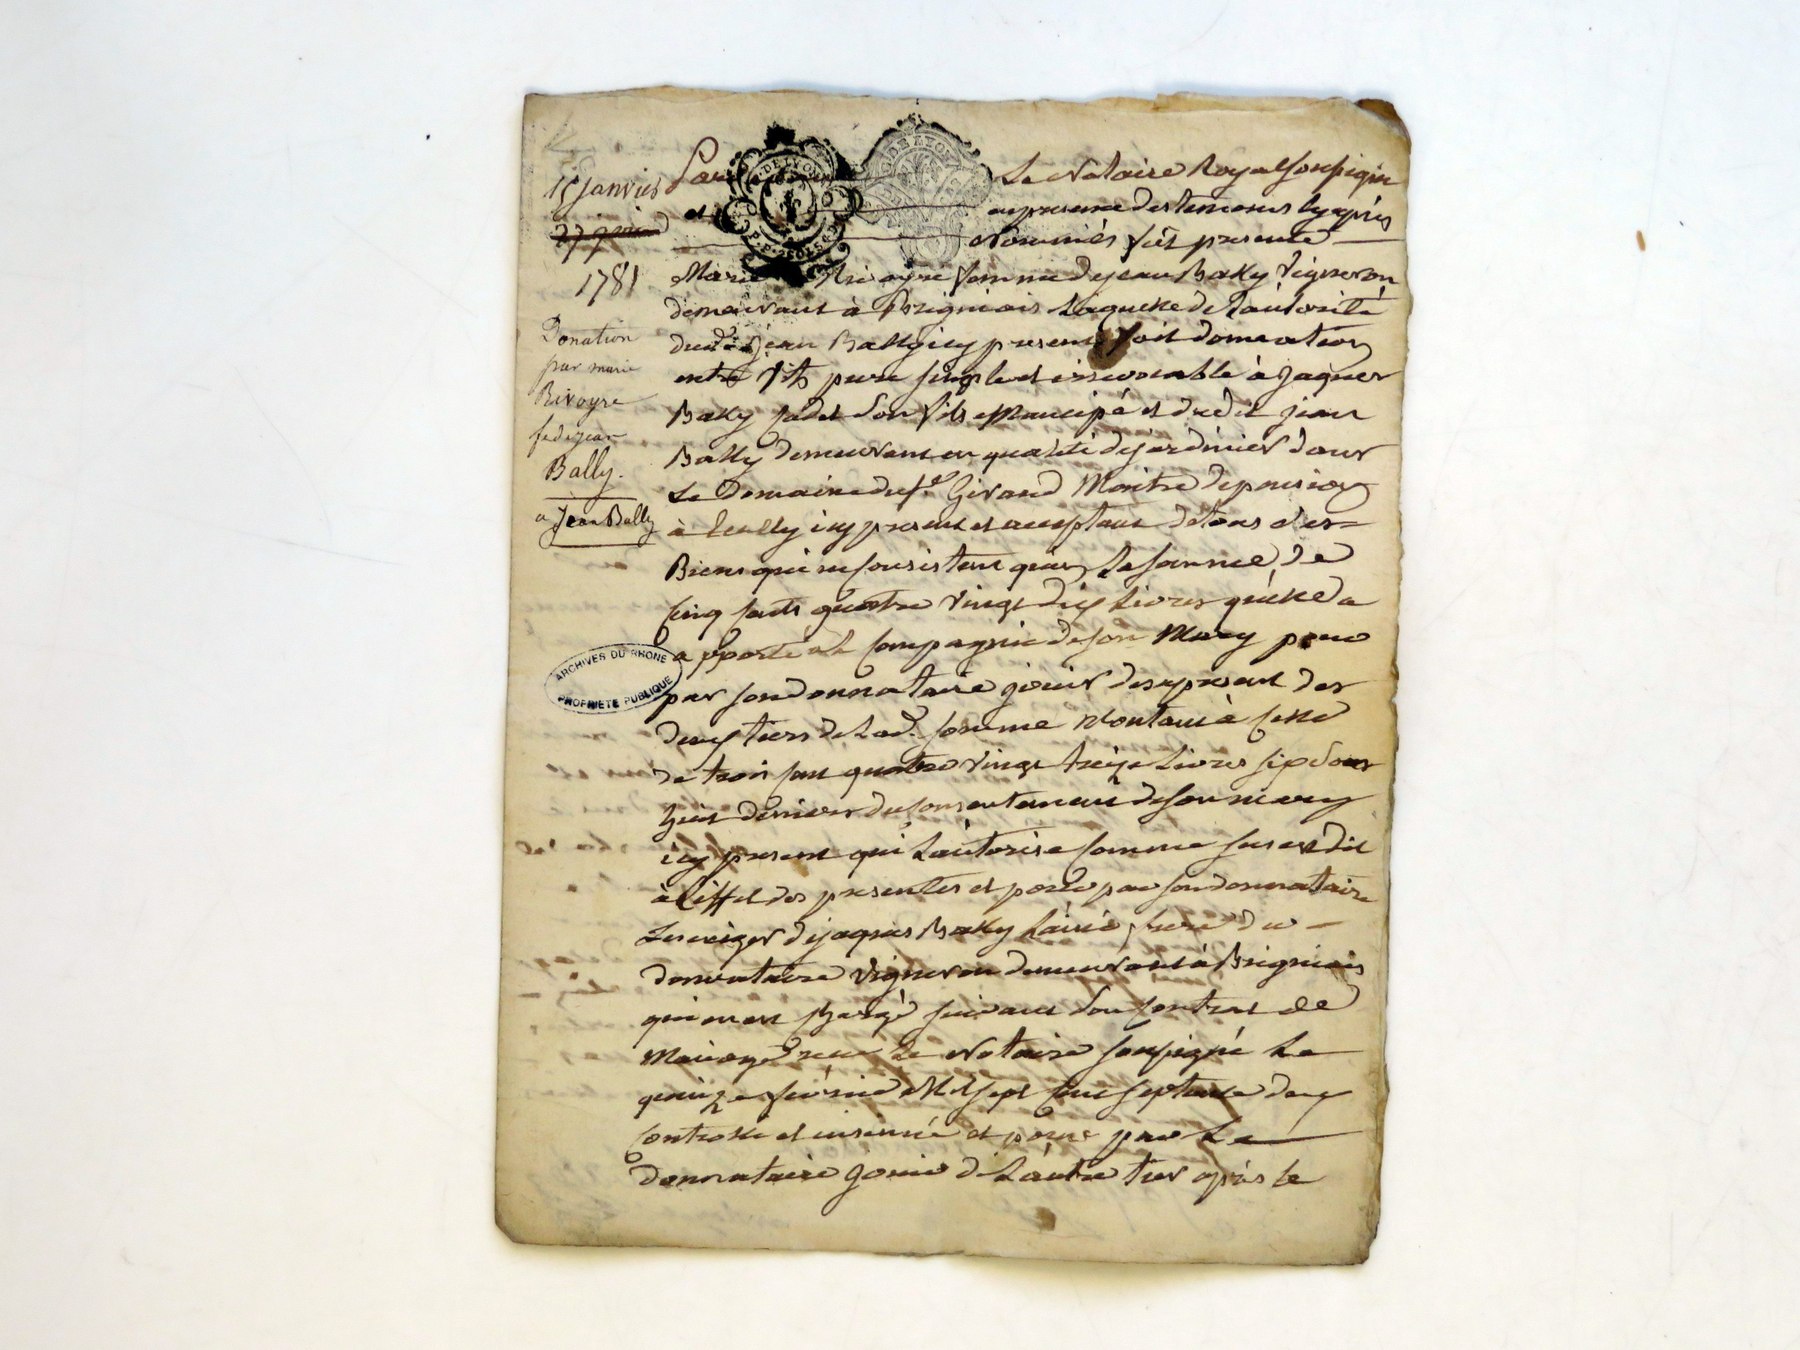 15 Janvier
1781
Donation
par marie
Rivoyre
fe de jean
Bally.
a Jean Bally
ARCHIVES DU RHONE
PROPRIETE PUBLIQUE
DE LYON
Par Le Notaire Royal soussigné
et en presence des temoins cy après
Nommés fut presente
Marie Rivoyre femme de jean Bally Vigneron
demeurant à Brignais Laquelle de L'autorité
dud. jean Bally icy present fait donnation
entre vifs pure simple et irrevocable à jaques
Bally cadet son fils emancipé et dudit jean
Bally demeurant en qualité de jardinier dans
Le Domaine du sr Girand Maitre de pension
à Ecully icy present et acceptant de tous ses
Biens qui ne consistent qu'en La somme de
Cinq cents quatre vingt dix Livres qu'elle a
apporté à la Compagnie de son Mary pour
par son donnataire jouir des apresent des
deux tiers de Lad. somme Montant à celle
de trois cent quatre vingt treize Livres six sous
huit deniers du consentement de son mary
icy present qui L'autorise comme sus est dit
à L'effet des presentes et pour par son donnataire
Les exiger de jaques Bally L'ainé frere du
donnataire Vigneron demeurant à Brignais
qui en est chargé suivant son contrat de
Mariage reçu Le Notaire soussigné Le
quinze fevrier Mil sept cent septante deux
Controllé et insinué et pour par Le
donnataire jouir de L'autre tier après le